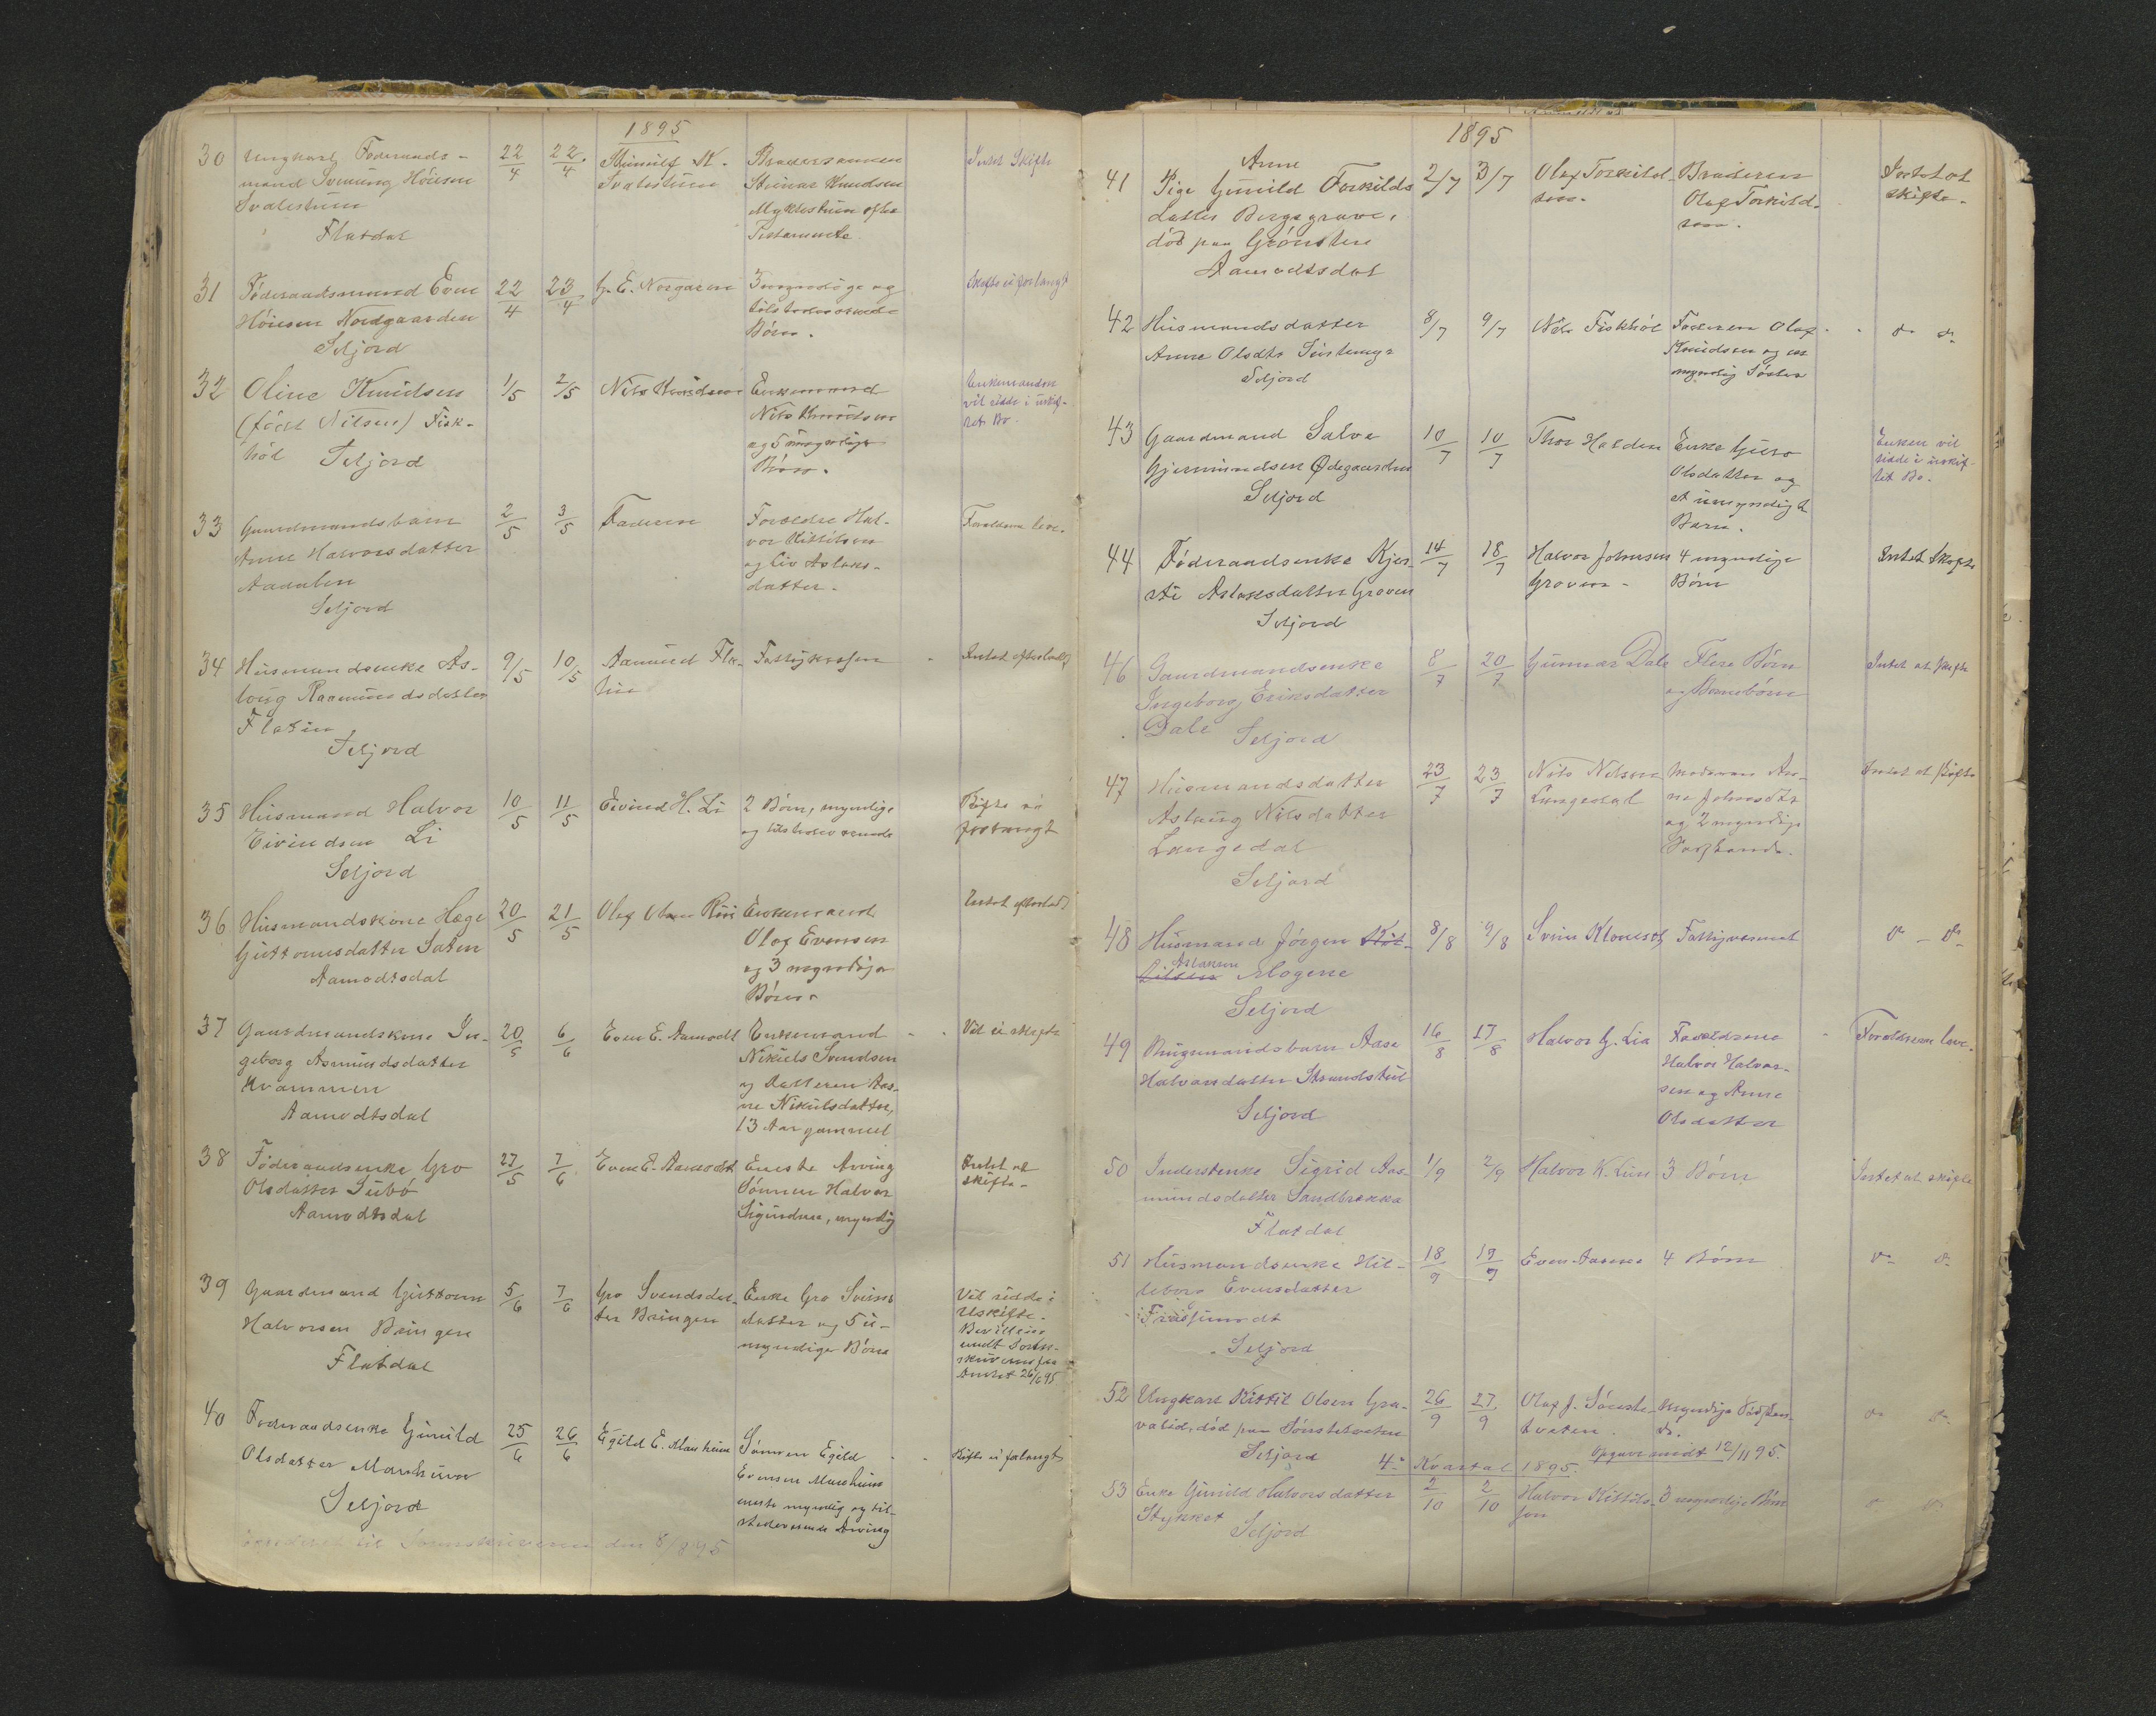 1895
30 Ungkarl Føderaads-
mand Sveinung Høiesen
Svalestuen
Flatdal
22/4 22/4
Svalestuen
Brodersønnen
Steinar Knudsen
Myklestuen efter
Testamente
Intet Skifte
31 Føderaadsmand Even
Høiesen Nordgaarden
Seljord
22/4 23/4
G. E. Norgaren
3 myndige og
tilstedeværende
Børn.
Skifte ei forlangt
32 Oline Knudsen
(født Nilsen) Fisk-
høl Seljord
1/5 2/5
Nils Knudsen
Enkemand
Nils Knudsen
og 5 umyndige
Børn.
Enkemanden
vil sidde i uskif-
tet Bo.
33 Gaardmandsbarn
Anne Halvorsdatter
Aadalen
Seljord
2/5 3/5
Faderen
Forældre Hal-
vor Kittilsen
og Liv Aslaks-
datter.
Forældrene leve.
34 Husmandsenke As-
loug Raamundsdatter
Flatin
Seljord
9/5 10/5
Aamund Fla-
tin
Fattigkassen
Intet efterladt
35 Husmand Halvor
Eivindsen Li
Seljord
10/5 11/5
Eivind H. Li
2 Børn, myndige
og tilstedeværende
Skifte ei
forlangt
36 Husmandskone Hæge
Guttormsdatter Saten
Aamodtsdal
20/5 21/5
Olaf Olsen Rui
Enkemand
Olaf Evensen
og 3 myndige
Børn.
Intet efterladt
37 Gaardmandskone In-
geborg Asmundsdatter
Kvammen
Aamodtsdal
20/5 6/6
Even E. Aamodt
Enkemand
Nikuls Svendsen
og Datteren Aas-
ne Nikulsdatter,
13 Aar gammel
Vil ei skifte
38 Føderaadsenke Gro
Olsdatter Subø
Aamodtsdal
27/5 7/6
Even E. Aamodt
Eneste Arving
Sønnen Halvor
Sigurdsen, myndig
Intet at
skifte.
39 Gaardmand Guttorm
Halvorsen Bringen
Flatdal
5/6 7/6
Gro Svendsdat-
ter Bringen
Enke Gro Svens-
datter og 5 u-
myndige Børn
Vil sidde i
Uskifte.
Bevilling
sendt Soren-
skriveren fra
Amtet 26/6 95
40 Føderaadsenke Gunild
Olsdatter Manheim
Seljord
25/6 26/6
Egild E. Manheim
Sønnen Egild
Evensen Manheim
eneste myndig og til-
stedeværende Arving
Skifte ei forlangt
til Sorenskriveren den 8/8 95
1895
Anne
41 Pige Gunild Torkilds
datter Bergsgrave,
død paa Grønstene
Aamodtsdal
2/7 3/7
Olaf Torkild-
sen.
Broderen
Olaf Torkild-
sen.
Intet at
skifte.
42 Husmandsdatter
Anne Olsdtr
Seljord
8/7 9/7
Nils Fiskhøl
Faderen Olaf
Knudsen og en
myndig Søster
do do
43 Gaardmand Salve
Gjermundsen Ødegaarden
Seljord
10/7 10/7
Thor Halden
Enke Guro
Olsdatter og
et umyndigt
Barn.
Enken vil
sidde i uskif-
tet Bo.
44 Føderaadsenke Kjer-
sti Aslaksdatter Groven
Seljord
14/7 18/7
Halvor Johnsen
Groven
4 myndige
Børn
Intet Skifte
46 Gaardmandsenke
Ingeborg Eriksdatter
Dale Seljord
8/7 20/7
Gunnar Dale
Flere Børn
og Børnebørn
Intet at skifte
47 Husmandsdatter
Aslaug Nilsdatter
Langedal
Seljord
23/7 23/7
Nils Nilsen
Langedal
Moderen An-
ne Johnsdtr
og 2 myndige
Sødskende.
Intet at skifte
48 Husmand Jørgen Kit-
tilsen Aslaksen Mogene
Seljord
8/8 9/8
Svein Klomset
Fattigvæsenet
do do
49 Brugmandsbarn Aase
Halvorsdatter Strandstul
Seljord
16/8 17/8
Halvor G. Lia
Forældrene
Halvor Halvor-
sen og Anne
Olsdatter
Forældrene leve.
50 Inderstenke Sigrid Aas-
mundsdatter Sandbrække
Flatdal
1/9 2/9
Halvor K. Lien
3 Børn
Intet at skifte
51 Husmandsenke Hil-
leborg Evensdatter
Seljord
18/9 19/9
Even Aasene
4 Børn
do do
52 Ungkarl Kittil Olsen Gra-
valid, død paa Sønstetveiten
Seljord
26/9 27/9
Olaf J. Sønste-
tveten.
Myndige Sødsken-
de.
do do
Opgave sendt 12/11 95.
4de Kvartal 1895.
53 Enke Gunild Halvorsdatter
Stykket
Seljord
2/10 2/10
Halvor Kittils-
sen
3 myndige Børn
do do